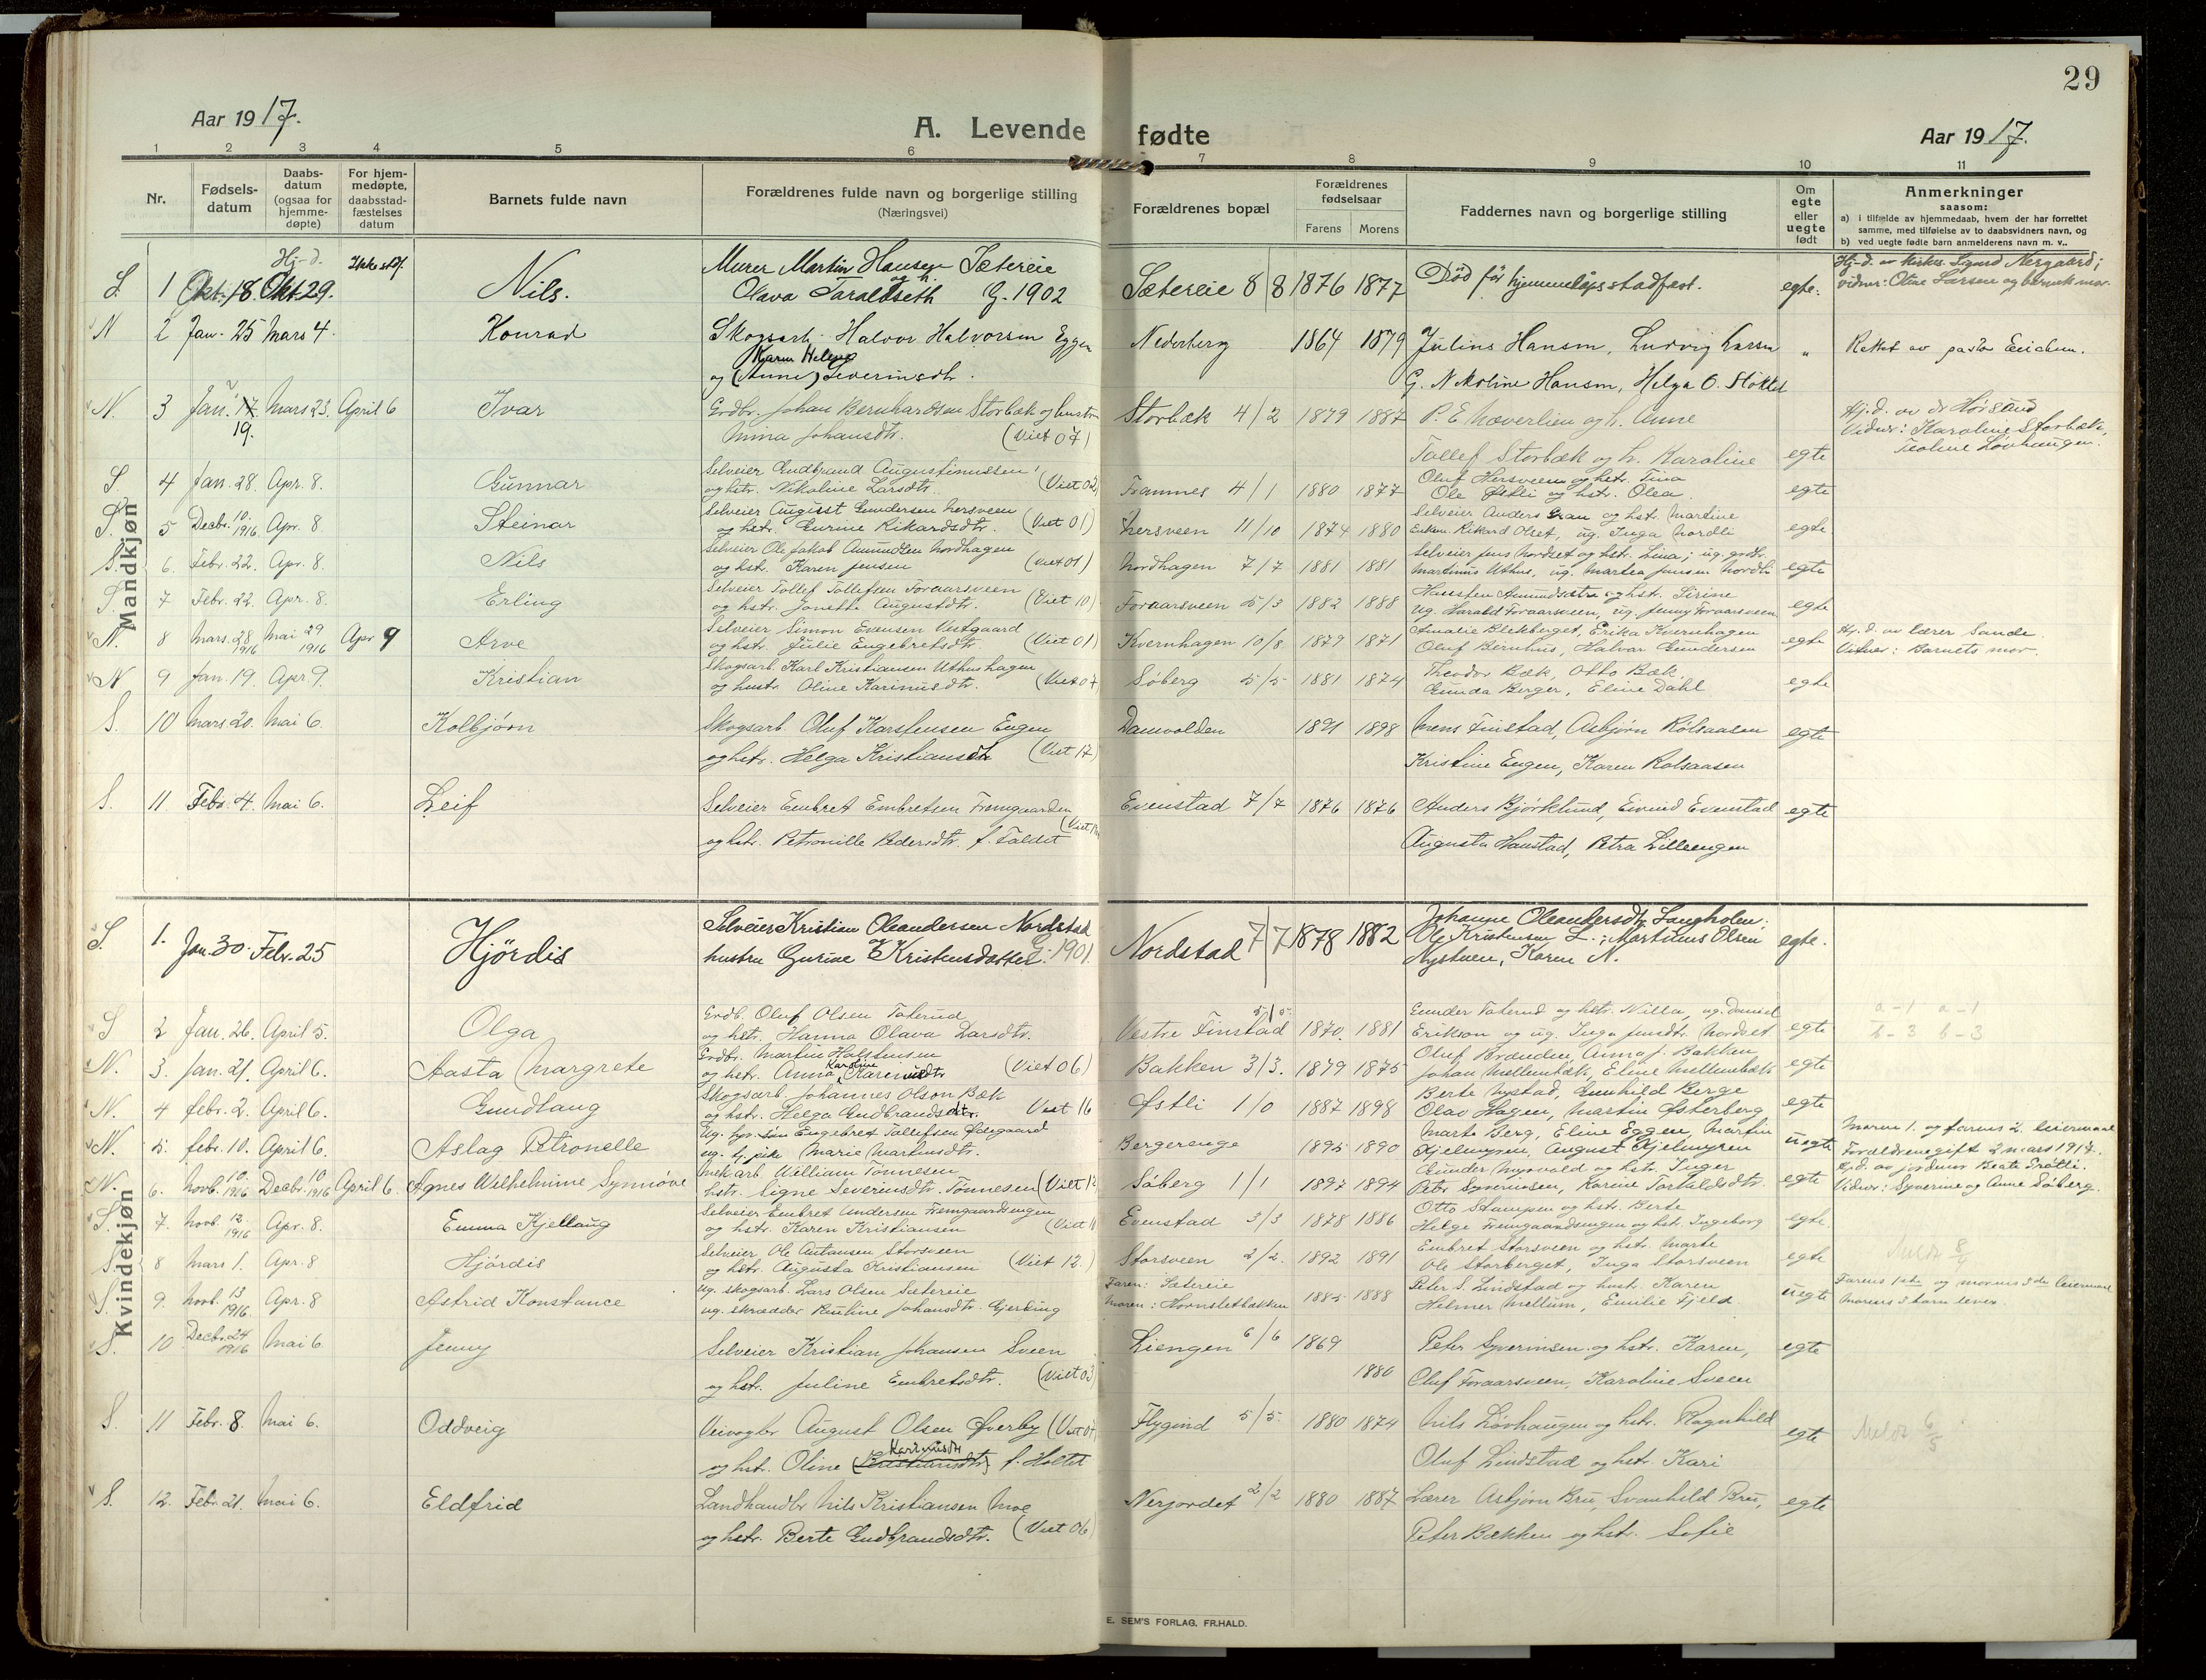 29
Aar 1917.
A. Levende fødte
Aar 1917.
1 2 3 4 5 6 7 8 9 10 11
Nr.
Fødsels-
datum
Daabs-
datum
(ogsaa for
hjemme-
døpte)
For hjem-
medøpte,
daabsstad-
fæstelses
datum
Barnets fulde navn
Forældrenes fulde navn og borgerlige stilling
(Næringsvei)
Forældrenes bopæl
Forældrenes
fødselsaar
Farens Morens
Faddernes navn og borgerlige stilling
Om
egte
eller
uegte
født
Anmerkninger
saasom:
a) i tilfælde av hjemmedaab, hvem der har forrettet
samme, med tilføielse av to daabsvidners navn, og
b) ved uegte fødte barn anmelderens navn m. v..
Mandkjøn
S. 1 Okt. 18. Hj-d. Okt. 29. Ikke stdf. Nils. Murer Martin Hansen Sætereie Sætereie 8/8 1876 1877 Død før hjemmedåpsstadfest. egte. Hj-d. av kirkes. Sigurd Nergaard;
og h. Olava Taraldseth G. 1902 vidner: Oline Larsen og barnets mor.
N 2 Jan. 25 Mars 4. Konrad Skogsarb. Halvor Halvorsen Eggen Nederberg 1864 1879 Julius Hansen, Ludvig Larsen " Rettet av pastor Erichsen.
Karen Helene
og (Anne) Severinsdtr. G. Nikoline Hansen, Helga O. Sløttet
N. 3 Jan. 17 19. Mars 23. April 6 Ivar Grdbr. Johan Bernhardsen Storbæk og hustru Storbæk 4/2 1879 1887 P. E. Hæverlien og h. Anne Hj.d. av dr Horsund
Mina Johansdtr. (Viet 07) Tollef Storbæk og h. Karoline egte Vidner: Karoline Storbæk, Teoline Løvhaugen.
S 4 Jan. 28. Apr. 8. Gunnar Selveier Gudbrand Augustinussen Framnes 4/1 1880 1877 Oluf Hersveen og hstr. Tina egte
og hstr. Nikoline Larsdtr. (Viet 02) Ole Østli og hstr. Olea.
S. 5 Decbr. 10. 1916 Apr. 8 Steinar Selveier August Gundersen Hersveen Hersveen 11/10 1874 1880 Selveier Anders Gran og hstr. Martine egte
og hstr. Gurine Rikardsdtr. (Viet 01) Enkem. Rikard Olset, ug. Inga Nordli
S. 6. Febr. 22. Apr. 8. Nils Selveier Ole Jakob Amundsen Nordhagen Nordhagen 7/7 1881 1881 Selveier Jens Nordset og hstr. Lina; ug. grdbr. egte
og hstr. Karen Jensen (Viet 01) Martinus Uthus, ug. Martea Jensen Nordli
S. 7 Febr. 22 Apr. 8. Erling Selveier Tollef Tollefsen Foraarsveen Foraarsveen 5/3 1882 1888 Hansten Amundsætra og hstr. Sirine egte
og hstr. Jonette Augustdtr. (Viet 10) Ug. Harald Foraarsveen, ug. Jenny Foraarsveen
N. 8 Mars. 28 1916 Mai 29 1916 Apr 9 Arve Selveier Simon Evensen Vestgaard Kvernhagen 10/8 1879 1871 Amalie Blekberget, Erika Kvernhagen egte Hj.d. av lærer Sande.
og hstr. Julie Engebretsdtr. (Viet 01) Oluf Bernhus, Halvar Gundersen Vidner: Barnets mor.
N 9 Jan. 19. Apr 9. Kristian Skogsarb. Karl Kristiansen Uthushagen Søberg 5/5 1881 1874 Theodor Bæk, Otto Bæk, egte
og hustr. Oline Karinusdtr. (Viet 07 Gunda Berger, Eline Dahl
S. 10 Mars 20. Mai 6. Kolbjørn Skogsarb. Oluf Karstensen Engen Damvolden 1891 1898 Mens Finstad, Asbjørn Rolsaasen egte
og hstr. Helga Kristiansdtr. (Viet 17) Kristine Engen, Karen Rolsaasen
S. 11. Febr. 4. Mai 6. Leif Selveier Embret Embretsen Fremgaarden Evenstad 7/7 1876 1876 Anders Bjørklund, Eivind Evenstad egte
og hstr. Petronille Pedersdtr. f. Taldet Augusta Haustad, Petra Lilleengen
Kvindekjøn
S. 1. Jan. 30. Febr. 25 Hjördis Selveier Kristian Oleandersen Nordstad Nordstad 7/7 1878 1882 Johanne Oleandersdtr. Langholen; egte.
hustru Gurine Kristensdatter G. 1901. Ole Kristensen L.; Martinus Olsen
Nystuen, Karen N.
S 2 Jan. 26. April 5. Olga Grdb. Oluf Olsen Taterud Vestre Finstad 5/5 1870. 1881 Gunder Taterud og hstr. Nilla, ug. Daniel egte a-1 a-1
og hstr. Hanna Olava Larsdtr. Erikson og ug. Inga Jensdtr. Nordset b-3 b-3
N. 3. Jan. 21. April 6. Aasta Margrete Grdbr. Martin Halstensen Bakken 3/3. 1879 1875 Oluf Brænden, Anna J. Bakken egte
og hstr. Anna Karoline Karinusdtr (Viet 06) Johan Mellembæk, Eline Mellembæk
N. 4 febr. 2. April 6. Gundlaug Skogsarb. Johannes Olson Bæk Østli 1/0 1887 1898 Berte Nystad, Gunhild Berge egte
og hstr. Helga Gudbrandsdtr. Viet 16 Olav Hagen, Martin Østerberg
N. 5. febr. 10. April 6. Aslag Petronelle Ug. tjen. søn Engebret Tollefsen Ødegaard Bergerenge 1895 1890 Marte Berg, Eline Eggen, Martin uegte Moren 1. og farens 2. leiermaal
ug. tj. pike Marie Martinsdtr. Kjelmyren, August Kjelmyren Forældrene gift 2 mars 1917.
N. 6. Novb. 10. 1916 Decbr. 10 1916 April 6. Agnes Wilhelmine Synnøve Mek. arb William Tønnesen Søberg 1/1 1897 1894 Gunder Myrvold og hstr. Inger egte Hj.d. av jordmor Beate Trøtti.
hstr. Signe Severinsdtr. Tønnesen Peter Syverinsen, Karine Torvaldsdtr. Vidner: Syverine og Anne Søberg.
S. 7. Novb. 12. 1916 Apr. 8. Emma Kjellaug Selveier Embret Andersen Fremgaardsengen Evenstad 3/3 1878 1886 Otto Stampen og hstr. Berte egte.
og hstr. Karen Kristiansen Helge Fremgaardsengen og hstr. Ingeborg
S. 8 Mars 1. Apr. 8 Hjördis Selveier Ole Antonsen Storsveen Storsveen 2/2. 1892 1891 Embret Storsveen og hstr. Marte egte
og hstr. Augusta Kristiansen (Viet 12.) Ole Storberget, Inga Storsveen
S. 9. Novb. 13 1916. Apr. 8 Astrid Konstance Ug. skogsarb. Lars Olsen Sætereie Faren: Sætereie 1885 1888 Peter S. Lindstad og hustr. Karen uegte Farens 1ste og morens 3de leiermaal
ug. skrædder Pauline Johansdtr. Gjerding Moren: Hornsletbakken Helmer Mellum, Emilie Fjeld Morens 3 barn lever.
S. 10 Decbr. 24 1916 Mai 6. Jenny Selveier Kristian Johansen Sveen Liengen 6/6 1869 Peter Syverinsen og hstr. Karen, egte
og hstr. Juline Embretsdtr. (Viet 03) 1880 Oluf Foraarsveen, Karoline Sveen
S. 11 Febr. 8. Mai 6. Oddveig Veivogter August Olsen Øverby Flygind 5/5. 1880 1874 Nils Løvhaugen og hstr. Ragnhild egte Meldt 6/5
og hst. Oline Karinusdtr (Kristiansdtr) f. Holtet Oluf Lindstad og hstr. Kari
S. 12. Febr. 21. Mai 6. Eldfrid Landhandler Nils Kristiansen Moe Nerjordet 2/2 1880 1887 Lærer Asbjørn Bru, Svanhild Bru, egte
og hstr. Berte Gudbrandsdtr. (Viet 06) Peter Bækken og hstr. Sofie
E. SEM'S FORLAG, FR.HALD.